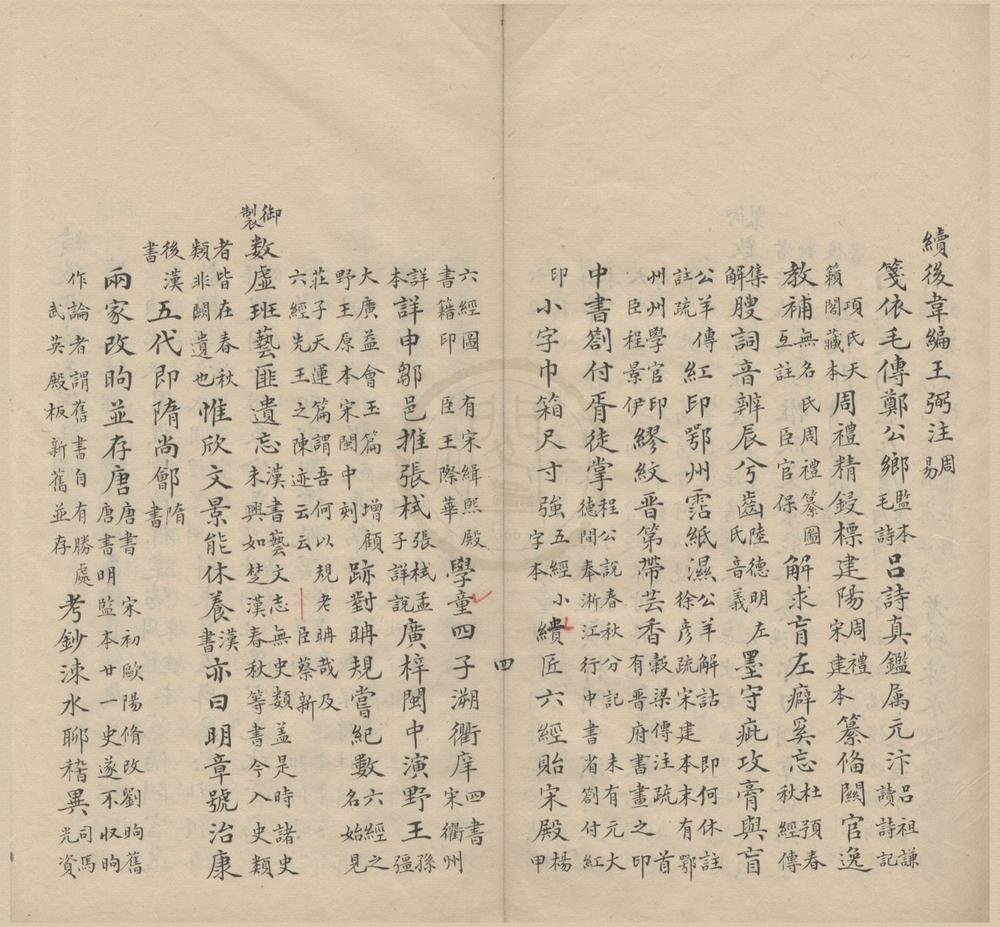 續後韋編王弼注周易
箋依毛傳鄭公鄉監本毛詩呂詩真鑑属元汴呂祖謙讀詩記
項氏天籟閣藏本周禮精鋟標建陽周禮宋建本纂脩闕官逸
教補無名氏周禮纂圖互註臣官保解求肓左癖奚忘杜預春秋經傳
集解膄詞音辨辰兮齒陸德明左氏音義墨守疵攻膏與盲
公羊傳註疏紅印鄂州霑紙濕公羊解詁即何休註徐彥疏宋建本末有鄂
州州學官印臣程景伊繆紋晋第帶芸香榖梁傳注疏首有晋府書畫之印
中書劄付胥徒掌程公說春秋分記未有元大德間奉淅江行中書省劄付紅
印小字巾箱尺寸強五經小字本繢匠六經貽宋殿楊甲
四
六經圖有宋緝熙殿書籍印臣王際華學童四子溯衢庠宋衢州四書
詳本詳申鄒邑推張栻張栻孟子詳說廣梓閩中演野王孫彊
大廣益會玉篇增顧野王原本宋閩中刻跡對聃規嘗紀數六經之名始見
莊子天運篇謂吾何以規老聃哉及六經先王之陳迹云云臣蔡新
御製數虛班藝匪遺忘漢書藝文志無史類盖是時諸史未興如楚漢春秋等書今入史類
者皆在春秋類非闕遺也惟欣文景能休養漢書亦曰明章號治康
後漢書五代即隋尚鄶隋書
兩家改昫並存唐唐書宋初歐陽脩改劉昫舊唐書明監本廿一史遂不収昫
作論者謂舊書自有勝處武英殿板新舊並存考鈔涑水聊稽異司馬光資